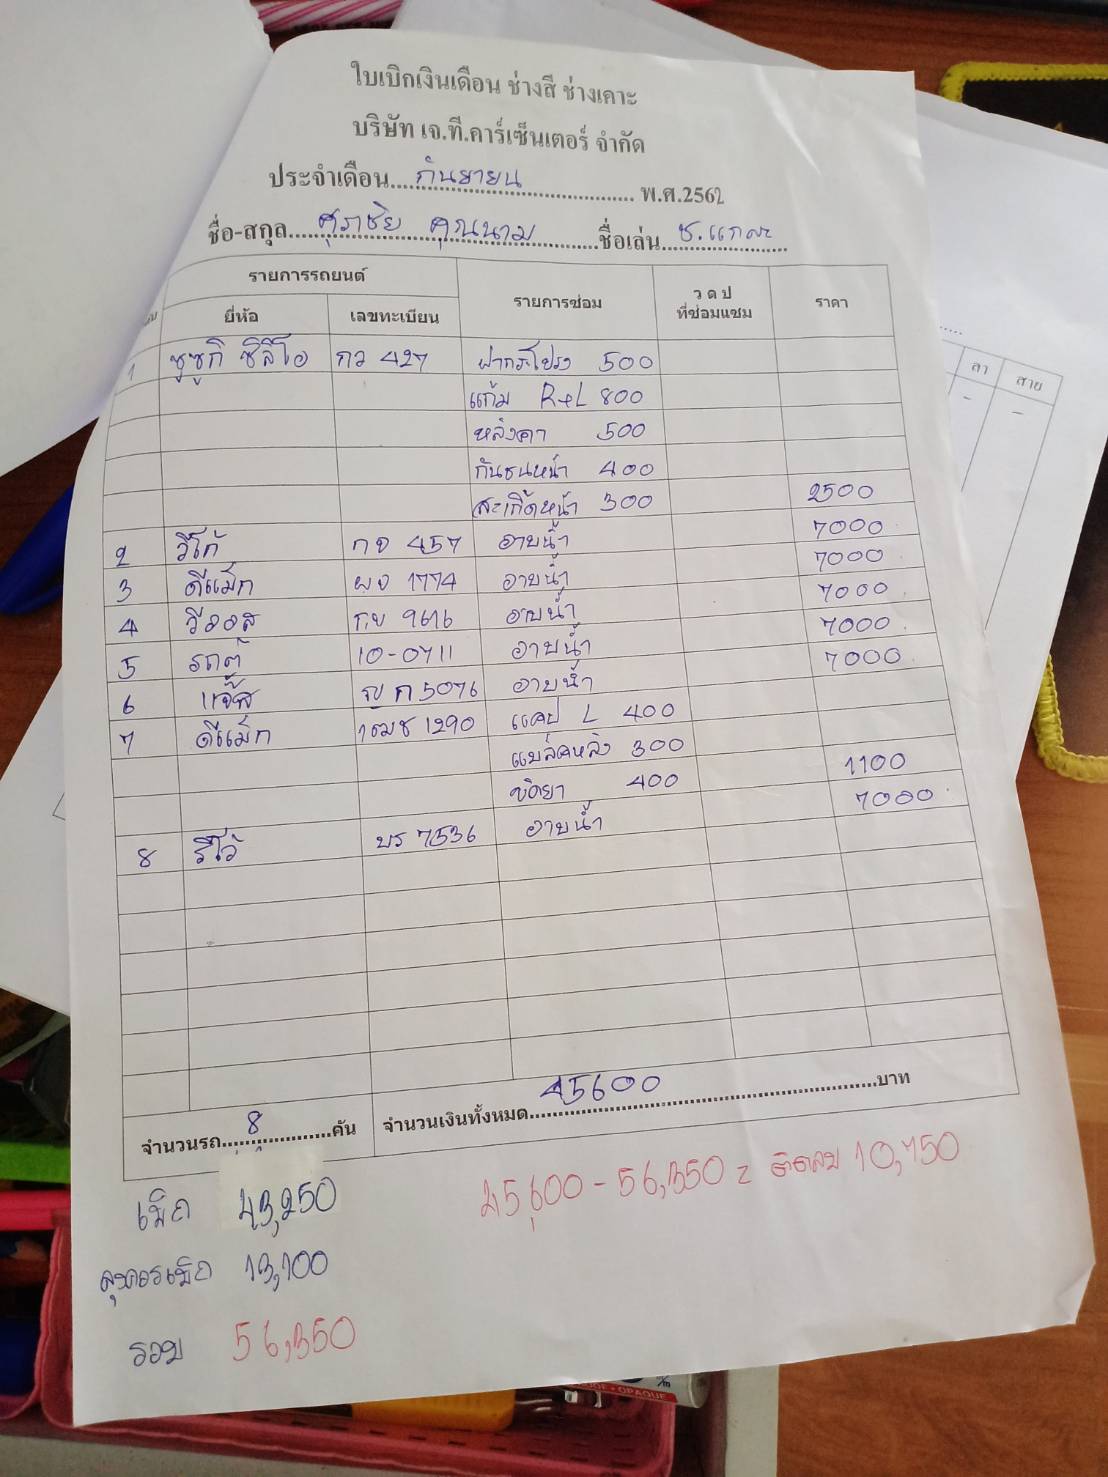 ใบเบิกเงินเดือน ช่างสี ช่างเคาะ
บริษัท เจ.ที.คาร์เซ็นเตอร์ จำกัด
ประจำเดือน....กันยายน.... พ.ศ.2562
ชื่อ-สกุล....ศุราชัย คุณนาม....ชื่อเล่น....ช.แกละ....
รายการรถยนต์ รายการซ่อม ว ด ป ที่ซ่อมแซม ราคา
ยี่ห้อ เลขทะเบียน
1 ซูซูกิ ซิลิโอ กว 427 ฝากระโปรง 500
แก้ม R+L 800
หลังคา 500
กันชนหน้า 400
สะเกิ๊ตหน้า 300 2500
2 วีโก้ กจ 457 อาบน้ำ 7000
3 ดีแม็ก ผจ 1774 อาบน้ำ 7000
4 วีออส กย 9616 อาบน้ำ 7000
5 รถตู้ 10-0711 อาบน้ำ 7000
6 แจ๊ส ญก 5076 อาบน้ำ 7000
7 ดีแม็ก 1ฒช 1290 แคป L 400
แบล็คหลัง 300
ขัดยา 400 1100
8 รีโว้ บร 7536 อาบน้ำ 7000
จำนวนรถ....8....คัน จำนวนเงินทั้งหมด....45600....บาท
เบิก 43,250
45,600 - 56,350 = ติดลบ 10,750
ลุงดอรเบิก 13,100
รวม 56,350
ลา สาย
- -
OPAQUE